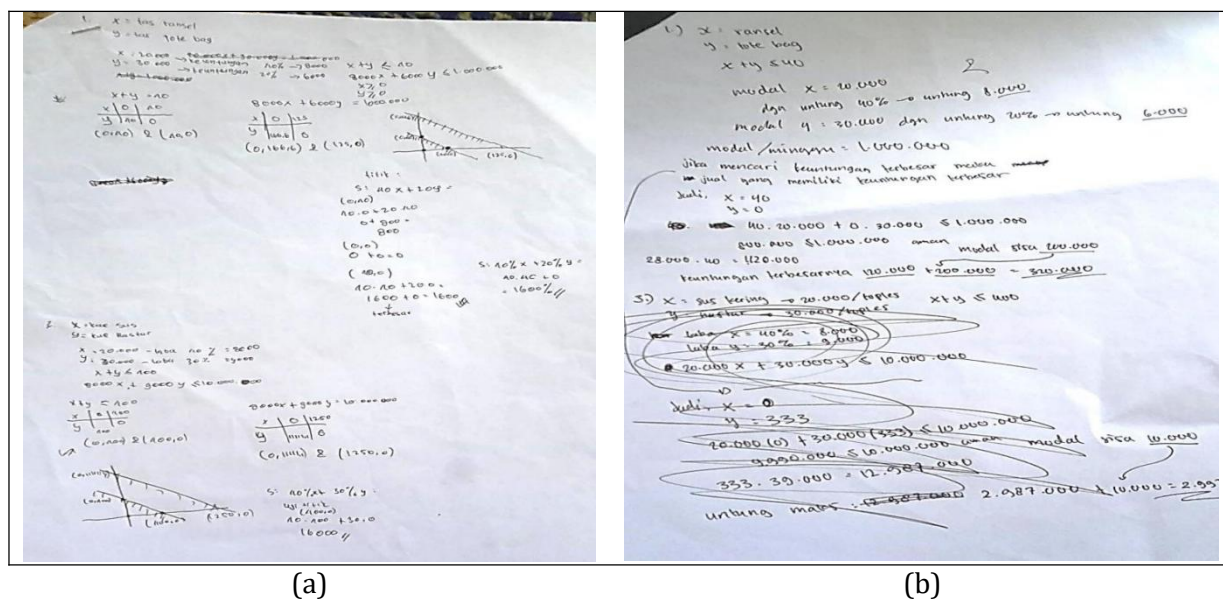 1. x = tas ransel
y = tas tote bag
x = 20.000 → keuntungan 40% → 8000
y = 30.000 → keuntungan 20% → 6000
x+y ≤ 40
8000x + 6000y ≤ 1.000.000
x ≥ 0
y ≥ 0
x+y = 40
x | 0 | 40
y | 40 | 0
(0,40) & (40,0)
8000x + 6000y = 1.000.000
x | 0 | 125
y | 166,6 | 0
(0,166,6) & (125,0)
(125,0)
titik :
S: 40x + 20y =
(0,40)
40.0 + 20.40
0 + 800 =
800
(0,0)
0 + 0 = 0
(40,0)
40.40 + 20.0 =
1600 + 0 = 1600
↓
terbesar
S: 40% x + 20% y =
40.40 + 0
= 1600% //
2. x = kue sus
y = kue nastar
x = 20.000 - laba 40% = 8000
y = 30.000 - laba 30% = 9000
x + y ≤ 400
8000x + 9000y ≤ 10.000.000
x+y ≤ 400
x | 0 | 400
y | 400 | 0
(0,400) & (400,0)
8000x + 9000y = 10.000.000
x | 0 | 1250
y | 1111,1 | 0
(0,1111,1) & (1250,0)
(0,400)
(400,0)
(1250,0)
S: 40% x + 30% y =
uji titik
(400,0)
40.400 + 30.0
16000 //
(a)
1.) x = ransel
y = tote bag
x + y ≤ 40
modal x = 20.000
dgn untung 40% → untung 8.000
modal y = 30.000 dgn untung 20% → untung 6.000
modal/minggu = 1.000.000
jika mencari keuntungan terbesar maka
jual yang memiliki keuntungan terbesar
Jadi, x = 40
y = 0
40. 20.000 + 0. 30.000 ≤ 1.000.000
800.000 ≤ 1.000.000 aman modal sisa 200.000
28.000 . 40 = 1120.000
keuntungan terbesarnya 120.000 + 200.000 = 320.000
3.) x = sus kering → 20.000/toples x+y ≤ 400
y = nastar → 30.000/toples
laba x = 40% = 8.000
laba y = 30% = 9.000
20.000 x + 30.000 y ≤ 10.000.000
Jadi, x = 0
y = 333
20.000 (0) + 30.000 (333) ≤ 10.000.000
9990.000 ≤ 10.000.000 aman modal sisa 10.000
333 . 39.000 = 12.987.000
untung maks = 2.987.000 + 10.000 = 2.997
(b)